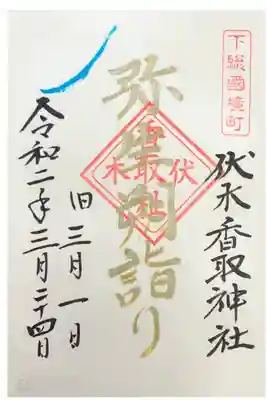 下総國境町
伏木香取神社
弥生朔詣り
伏木香取社
旧三月一日
令和二年三月二十四日